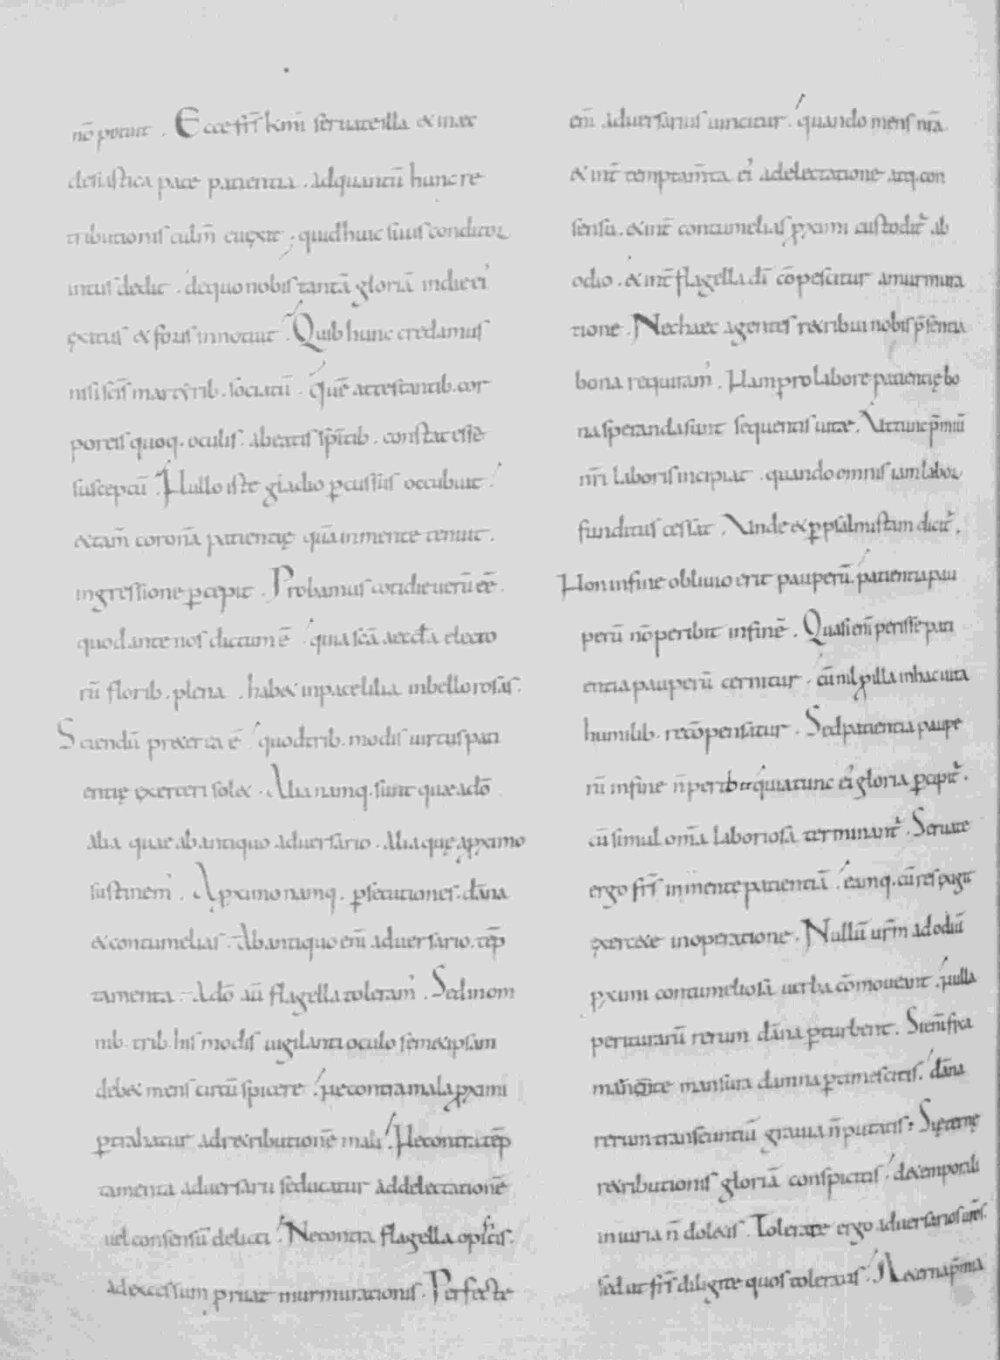 nō potuit . Ecce fr̄s km̄i seruate illa & in ec
clesiastica pace patientia . ad quantū hunc re
tributionis culm̄ euexit ; quid huic suus conditor
intus dedit . de quo nobis tantā gloriā indiei
exitus & foris innotuit . Quib hunc credamus
nisi sc̄is martyrib . sociatū . quē attestantib . cor
poreis quoq . oculis . a beatis sp̄itib . constat esse
susceptū Nullo iste gladio p̄cussus occubuit
& tam̄ coronā patientię quā in mente tenuit .
ingressione p̄cepit . Probamus cotidie uerū eē
quod ante nos dictum ē quia sc̄a aeccl̄a electo
rū florib . plena . hab& in pace lilia in bello rosas .
Sciendū pr&erea ē quod trib . modis uirtus pati
entię exerceri sol& . Alia namq . sunt quae a dō
alia quae ab antiquo aduersario . alia quę a pximo
sustinem' . A pximo namq . psecutiones . dāna
& contumelias . Ab antiquo eni aduersario . tēp
tamenta . A dō au flagella toleram' . Sed in om
nib . trib . his modis uigilanti oculo sem&ipsam
deb& mens circū spicere Ne contra mala pximi
ptrahatur ad r&ributionē mali Ne contra tēp
tamenta aduersarii seducatur ad delectationē
uel consensū delicti Ne contra flagella opificis .
ad excessum pruat murmurationis . Perfecte
eni aduersarius uincitur . quando mens nr̄a
& int̄ temptam̄ta ei' a delectatione atq . con
sensu . & int̄ contumelias pximi custodit' ab
odio . & int̄ flagella dī cōpescitur a murmura
tione . Nec haec agentes r&ribui nobis p̄sentia
bona requiram' . Nam pro labore patientię bo
na speranda sunt sequentis uitae . Ut tunc p̄miū
nr̄i laboris incipiat . quando omnis iam labor
funditus cessat . Unde & p psalmistam dicit' .
Non in fine obliuio erit pauperū . patientia pau
perū nō peribit in finē . Quasi eni perisse pati
entia pauperū cernitur . cū nil p illa in hac uita
humilib . recōpensatur . Sed patientia paupe
rū in fine n̄ peribit quia tunc ei' gloria pcipit' .
cū simul om̄a laboriosa terminant' . Seruate
ergo fr̄s in mente patientiā . eamq . cū res exigit
exerc&e in operatione . Nullū ur̄m ad odiū
pximi contumeliosa uerba cōmoueant . nulla
periturarū rerum dāna pturbent . Si eni fixa
mansura damna ptimescitis . dāna
rerum transeuntiū grauia n̄ putatis . Si ęternę
r&ributionis gloriā conspicitis . de temporali
iniuria n̄ dol&is . Tolerate ergo aduersarios ur̄os .
sed ut fr̄s diligite quos toleratis . A&erna p̄mia